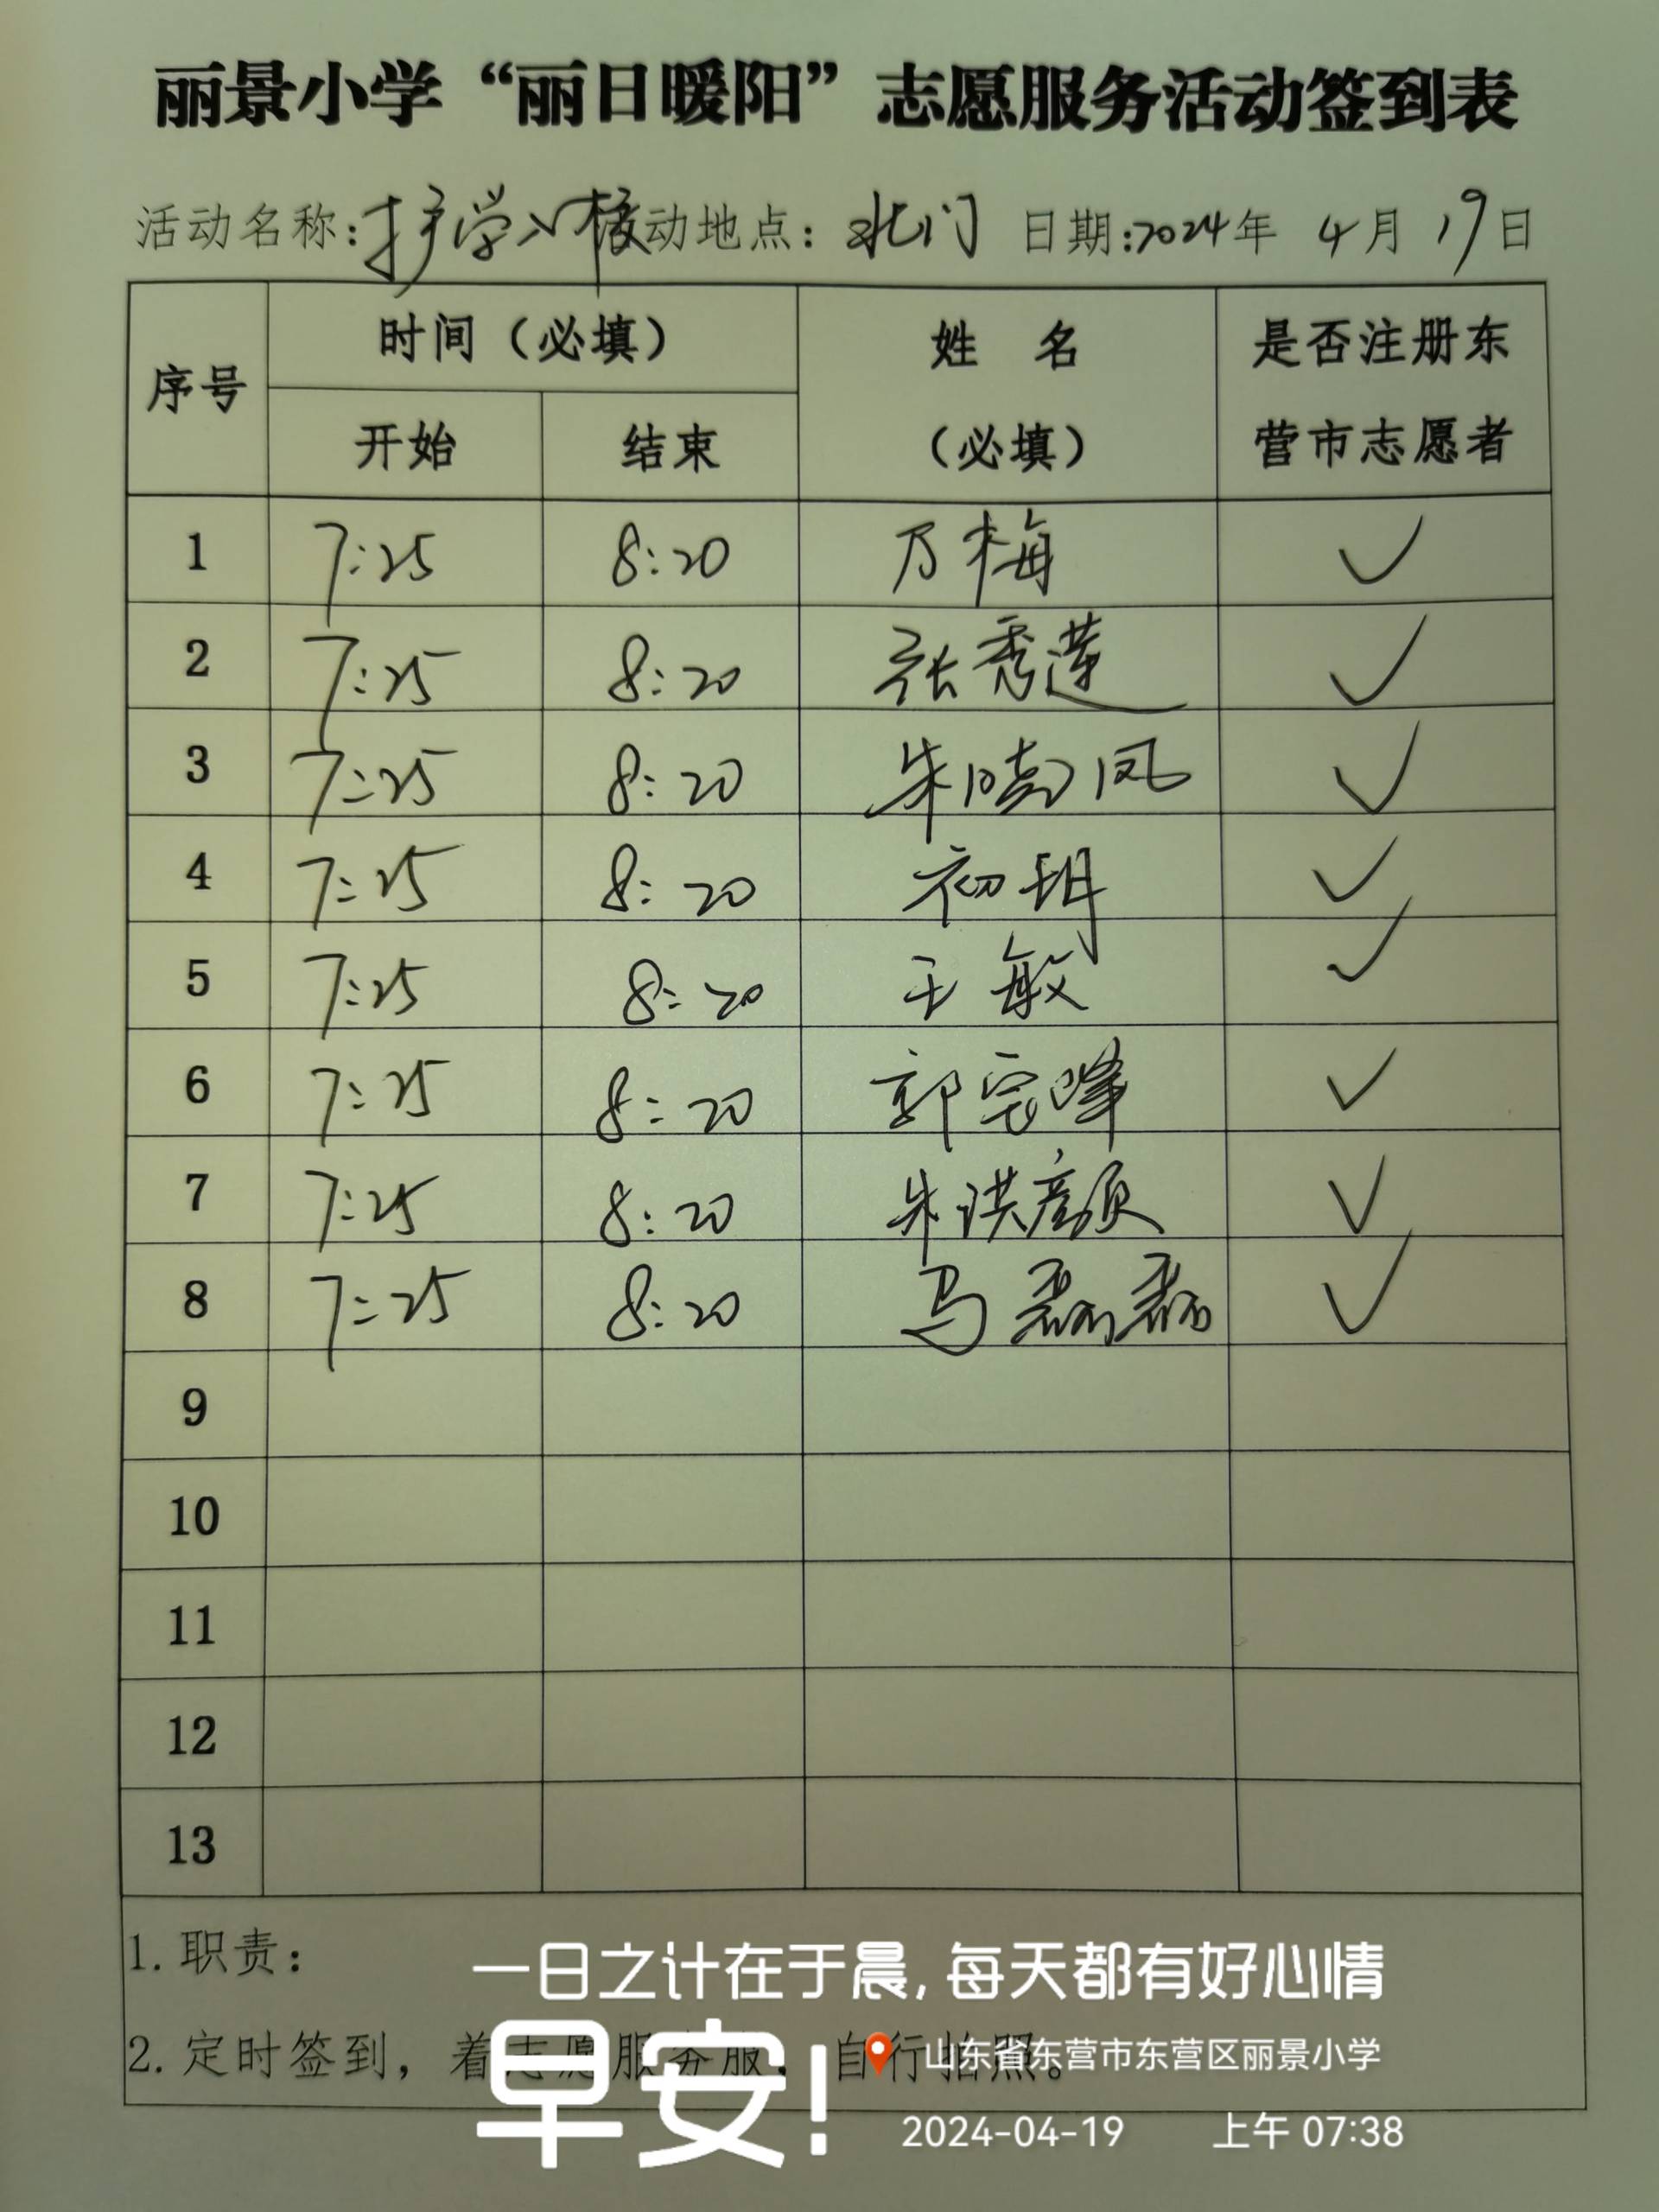 丽景小学“丽日暖阳”志愿服务活动签到表
活动名称:护学入校 活动地点：北门 日期:2024年 4月 19日
序号 时间（必填） 姓 名（必填） 是否注册东营市志愿者
开始 结束
1 7:25 8:20 万梅 ✓
2 7:25 8:20 张秀莲 ✓
3 7:25 8:20 朱晓凤 ✓
4 7:25 8:20 初玥 ✓
5 7:25 8:20 王敏 ✓
6 7:25 8:20 郭宗峰 ✓
7 7:25 8:20 朱洪颜 ✓
8 7:25 8:20 马磊磊 ✓
9
10
11
12
13
1.职责：
2.定时签到，着志愿服务服，自行拍照。
一日之计在于晨,每天都有好心情
早安!
山东省东营市东营区丽景小学
2024-04-19 上午 07:38